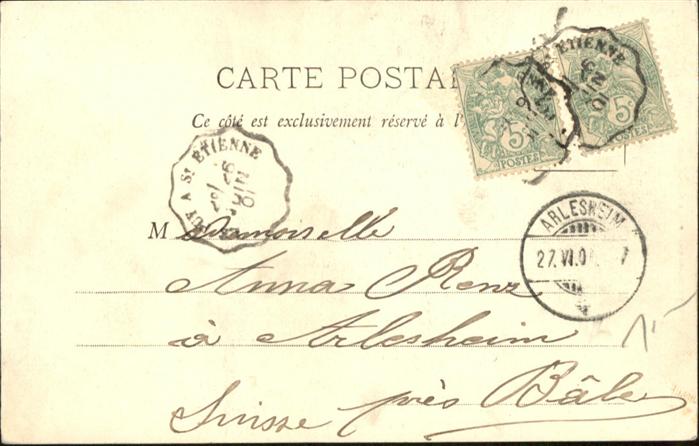 CARTE POSTA
Ce côté est exclusivement réservé à l'
St ETIENNE
5
5
POSTES
POSTES
A St ETIENNE
JUIN
ARLESHEIM
27. VI. 0
Mademoiselle
Anna Renz
à Arlesheim
Suisse près Bâle